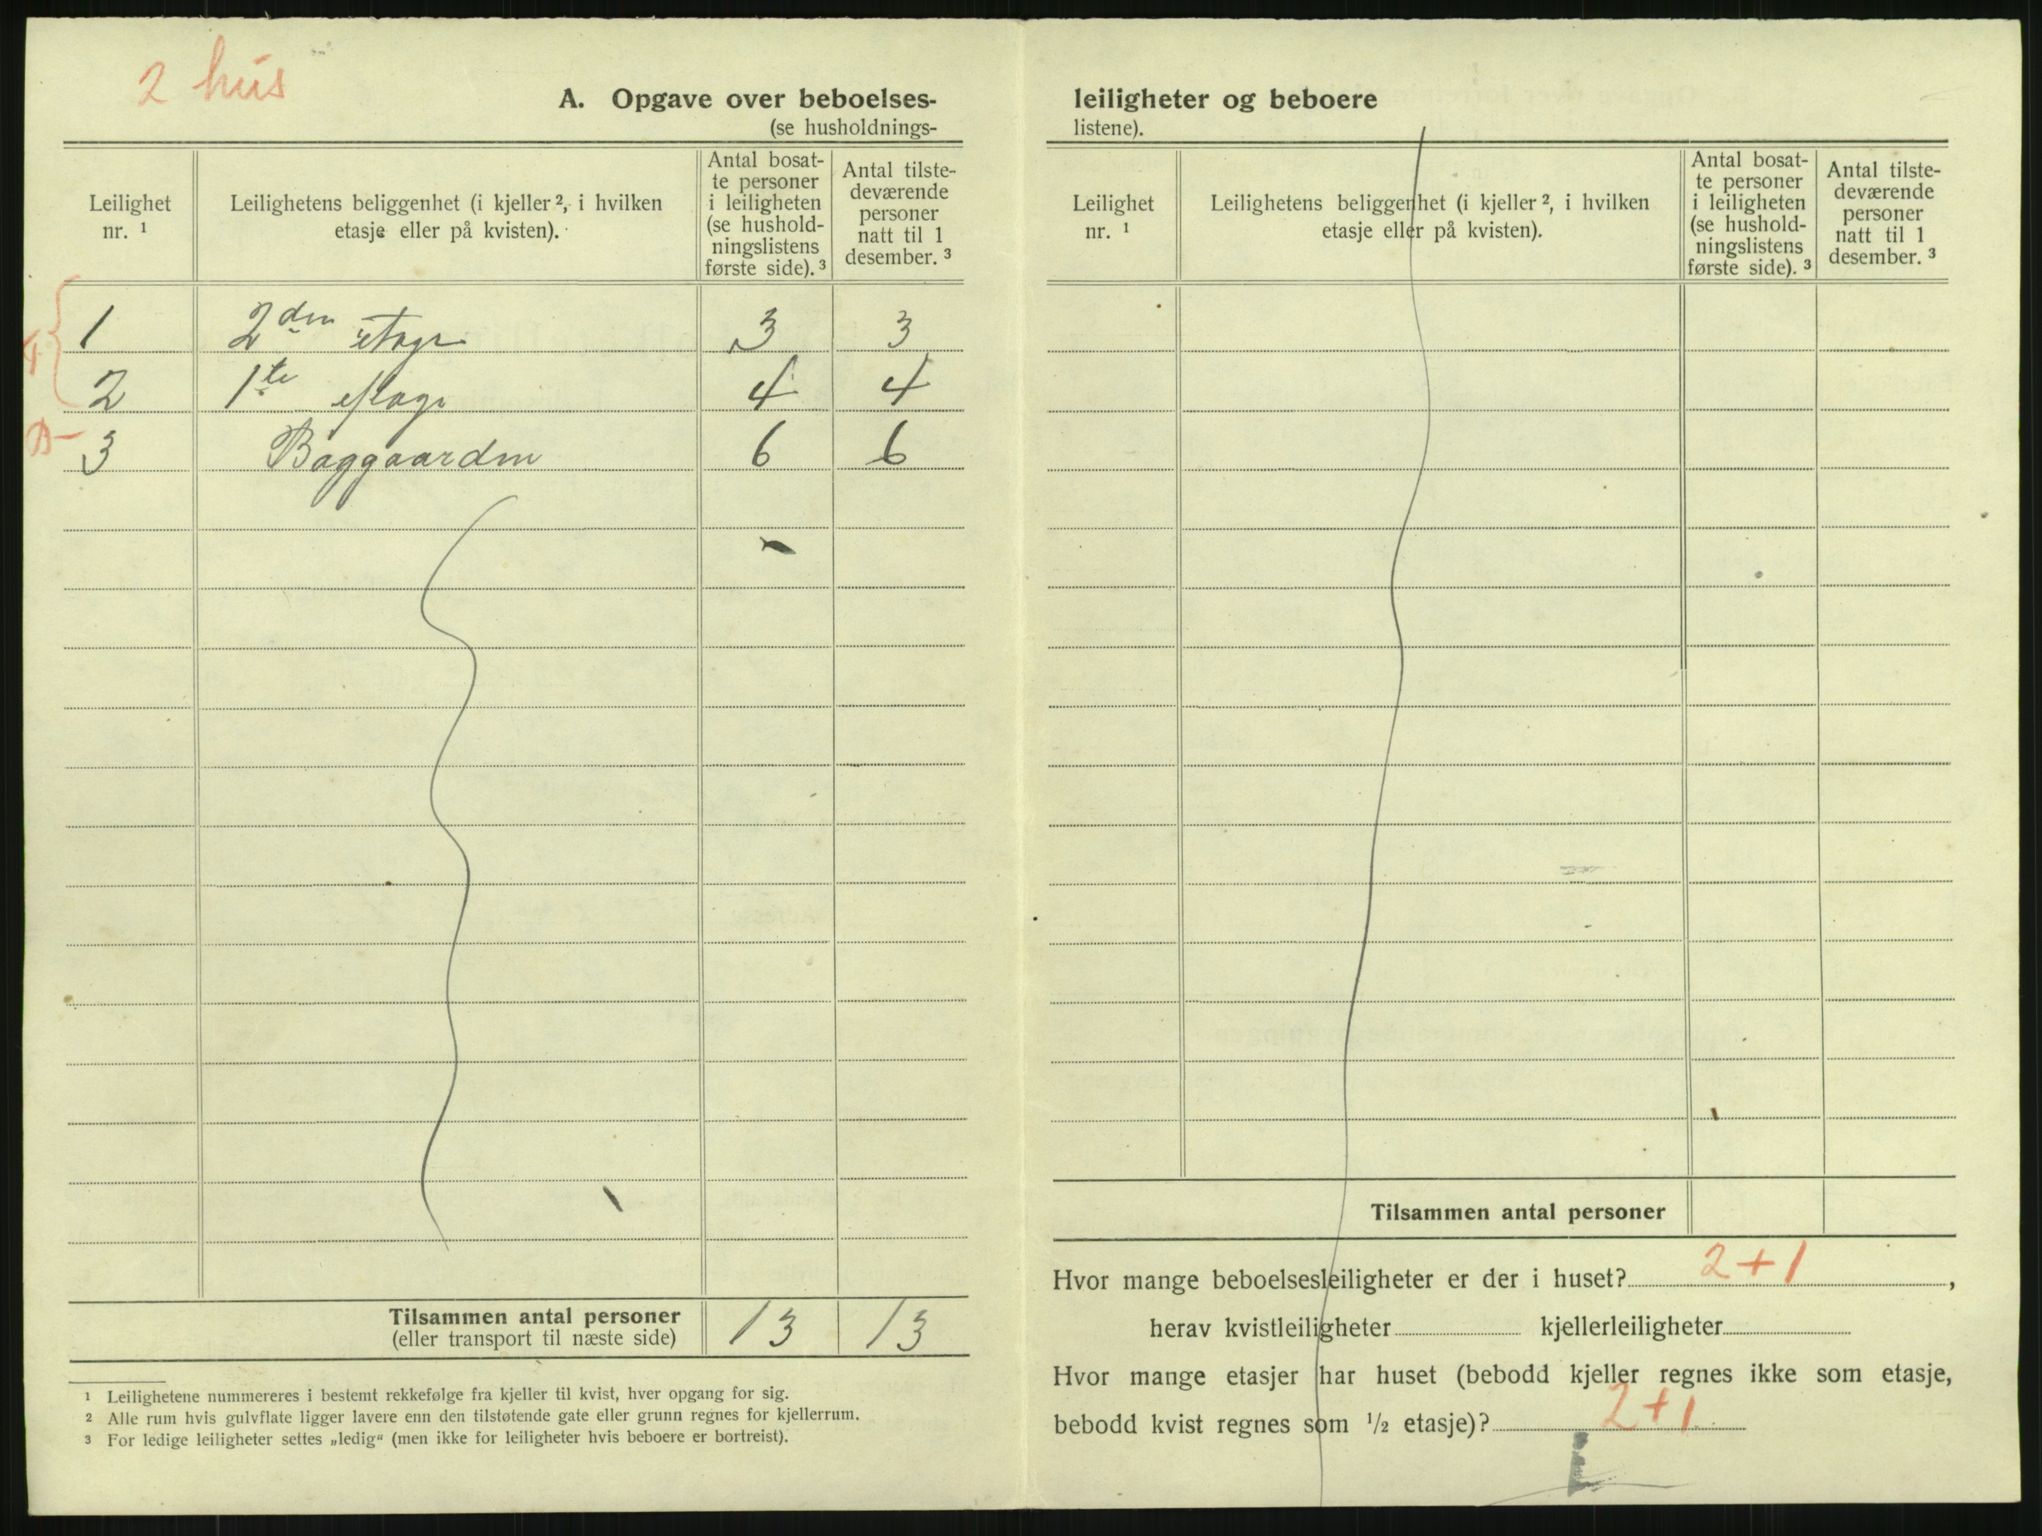 2 hus
A. Opgave over beboelses-
(se husholdnings-
Leilighet nr. ¹
Leilighetens beliggenhet (i kjeller ², i hvilken etasje eller på kvisten).
Antal bosat-
te personer
i leiligheten
(se hushold-
ningslistens
første side). ³
Antal tilste-
deværende
personer
natt til 1
desember. ³
1 2den etage 3 3
2 1te etage 4 4
3 Baggaarden 6 6
Tilsammen antal personer 13 13
(eller transport til næste side)
¹ Leilighetene nummereres i bestemt rekkefølge fra kjeller til kvist, hver opgang for sig.
² Alle rum hvis gulvflate ligger lavere enn den tilstøtende gate eller grunn regnes for kjellerrum.
³ For ledige leiligheter settes „ledig“ (men ikke for leiligheter hvis beboere er bortreist).
leiligheter og beboere
listene).
Leilighet nr. ¹
Leilighetens beliggenhet (i kjeller ², i hvilken etasje eller på kvisten).
Antal bosat-
te personer
i leiligheten
(se hushold-
ningslistens
første side). ³
Antal tilste-
deværende
personer
natt til 1
desember. ³
Tilsammen antal personer
Hvor mange beboelsesleiligheter er der i huset? 2+1,
herav kvistleiligheter kjellerleiligheter
Hvor mange etasjer har huset (bebodd kjeller regnes ikke som etasje,
bebodd kvist regnes som ½ etasje)? 2+1